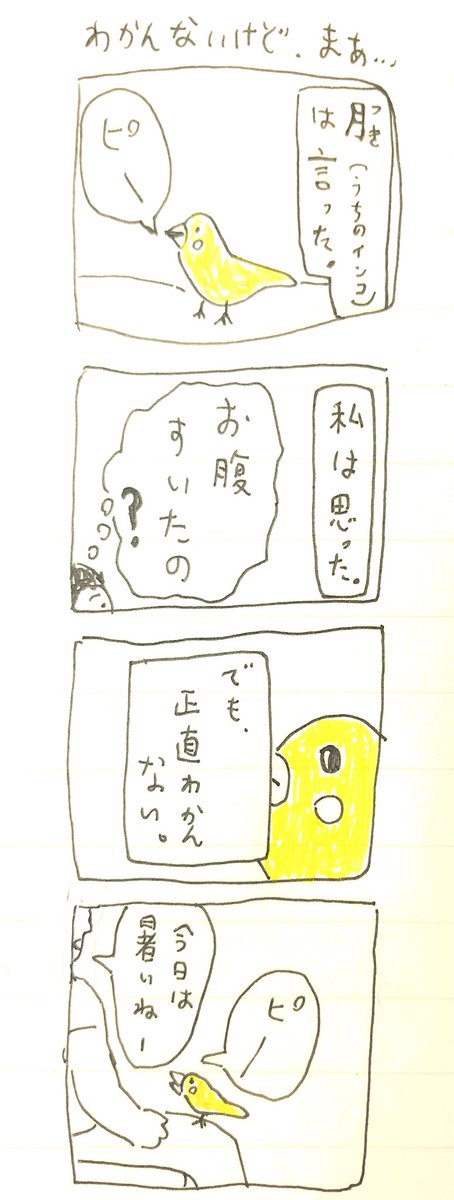 わかんないけど、まあ…
月つき(うちのインコ)
は言った。
ピー
私は思った。
お腹
すいたの
?
でも、
正直わかん
ない。
ピー
今日は
暑いねー